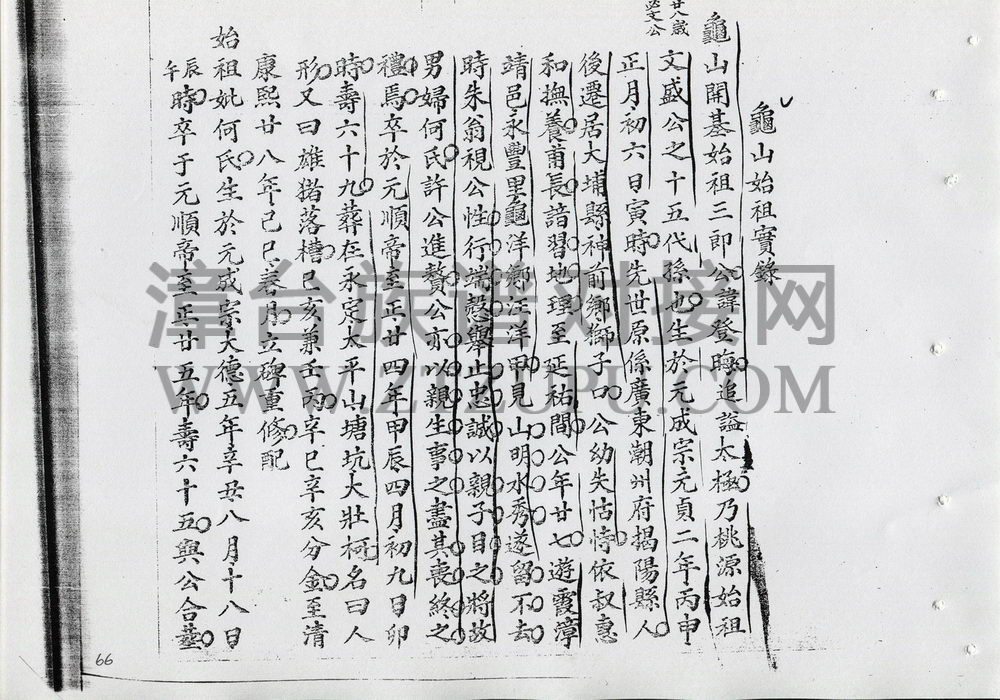 龜山始祖實錄
龜山開基始祖三郎公諱登晦追謚太極乃桃源始祖
廿八歲
文公
文盛公之十五代孫也生於元成宗元貞二年丙申
正月初六日寅時先世原係廣東潮州府揭陽縣人
後遷居大埔縣神前鄉獅子口公幼失怙恃依叔惠
和撫養甫長諳習地理至延祐間公年廿七遊霞漳
靖邑永豐里龜洋鄉汪洋甲見山明水秀遂留不去
時朱翁視公性行端慤舉止忠誠以親子目之將故
男婦何氏許公進贅公亦以親生事之盡其喪終之
禮焉卒於元順帝至正廿四年甲辰四月初九日卯
時壽六十九葬在永定太平山塘坑大壯柯名曰人
形又曰雄猪落槽己亥兼壬丙辛巳辛亥分金至清
康熙廿八年己巳春月立碑重修配
始祖妣何氏生於元成宗大德五年辛丑八月十八日
辰午時卒于元順帝至正廿五年壽六十五與公合塟
漳台族谱对接网
WWW.ZTZUPU.COM
66